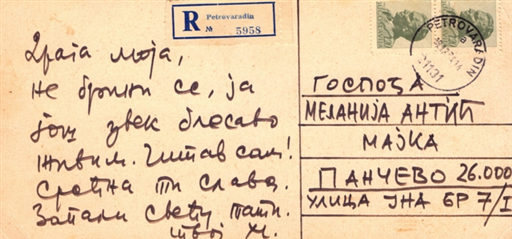 R
Petrovaradin
№ 5958
PETROVARADIN
21131
Драга моја,
не брини се, ја
још увек блесаво
живим. Читав сам!
Срећна ти Слава.
Запали свећу тати.
твој М.
ГОСПОЂА
МЕЛАНИЈА АНТИЋ
МАЈКА
ПАНЧЕВО 26.000
УЛИЦА ЈНА БР 7/I